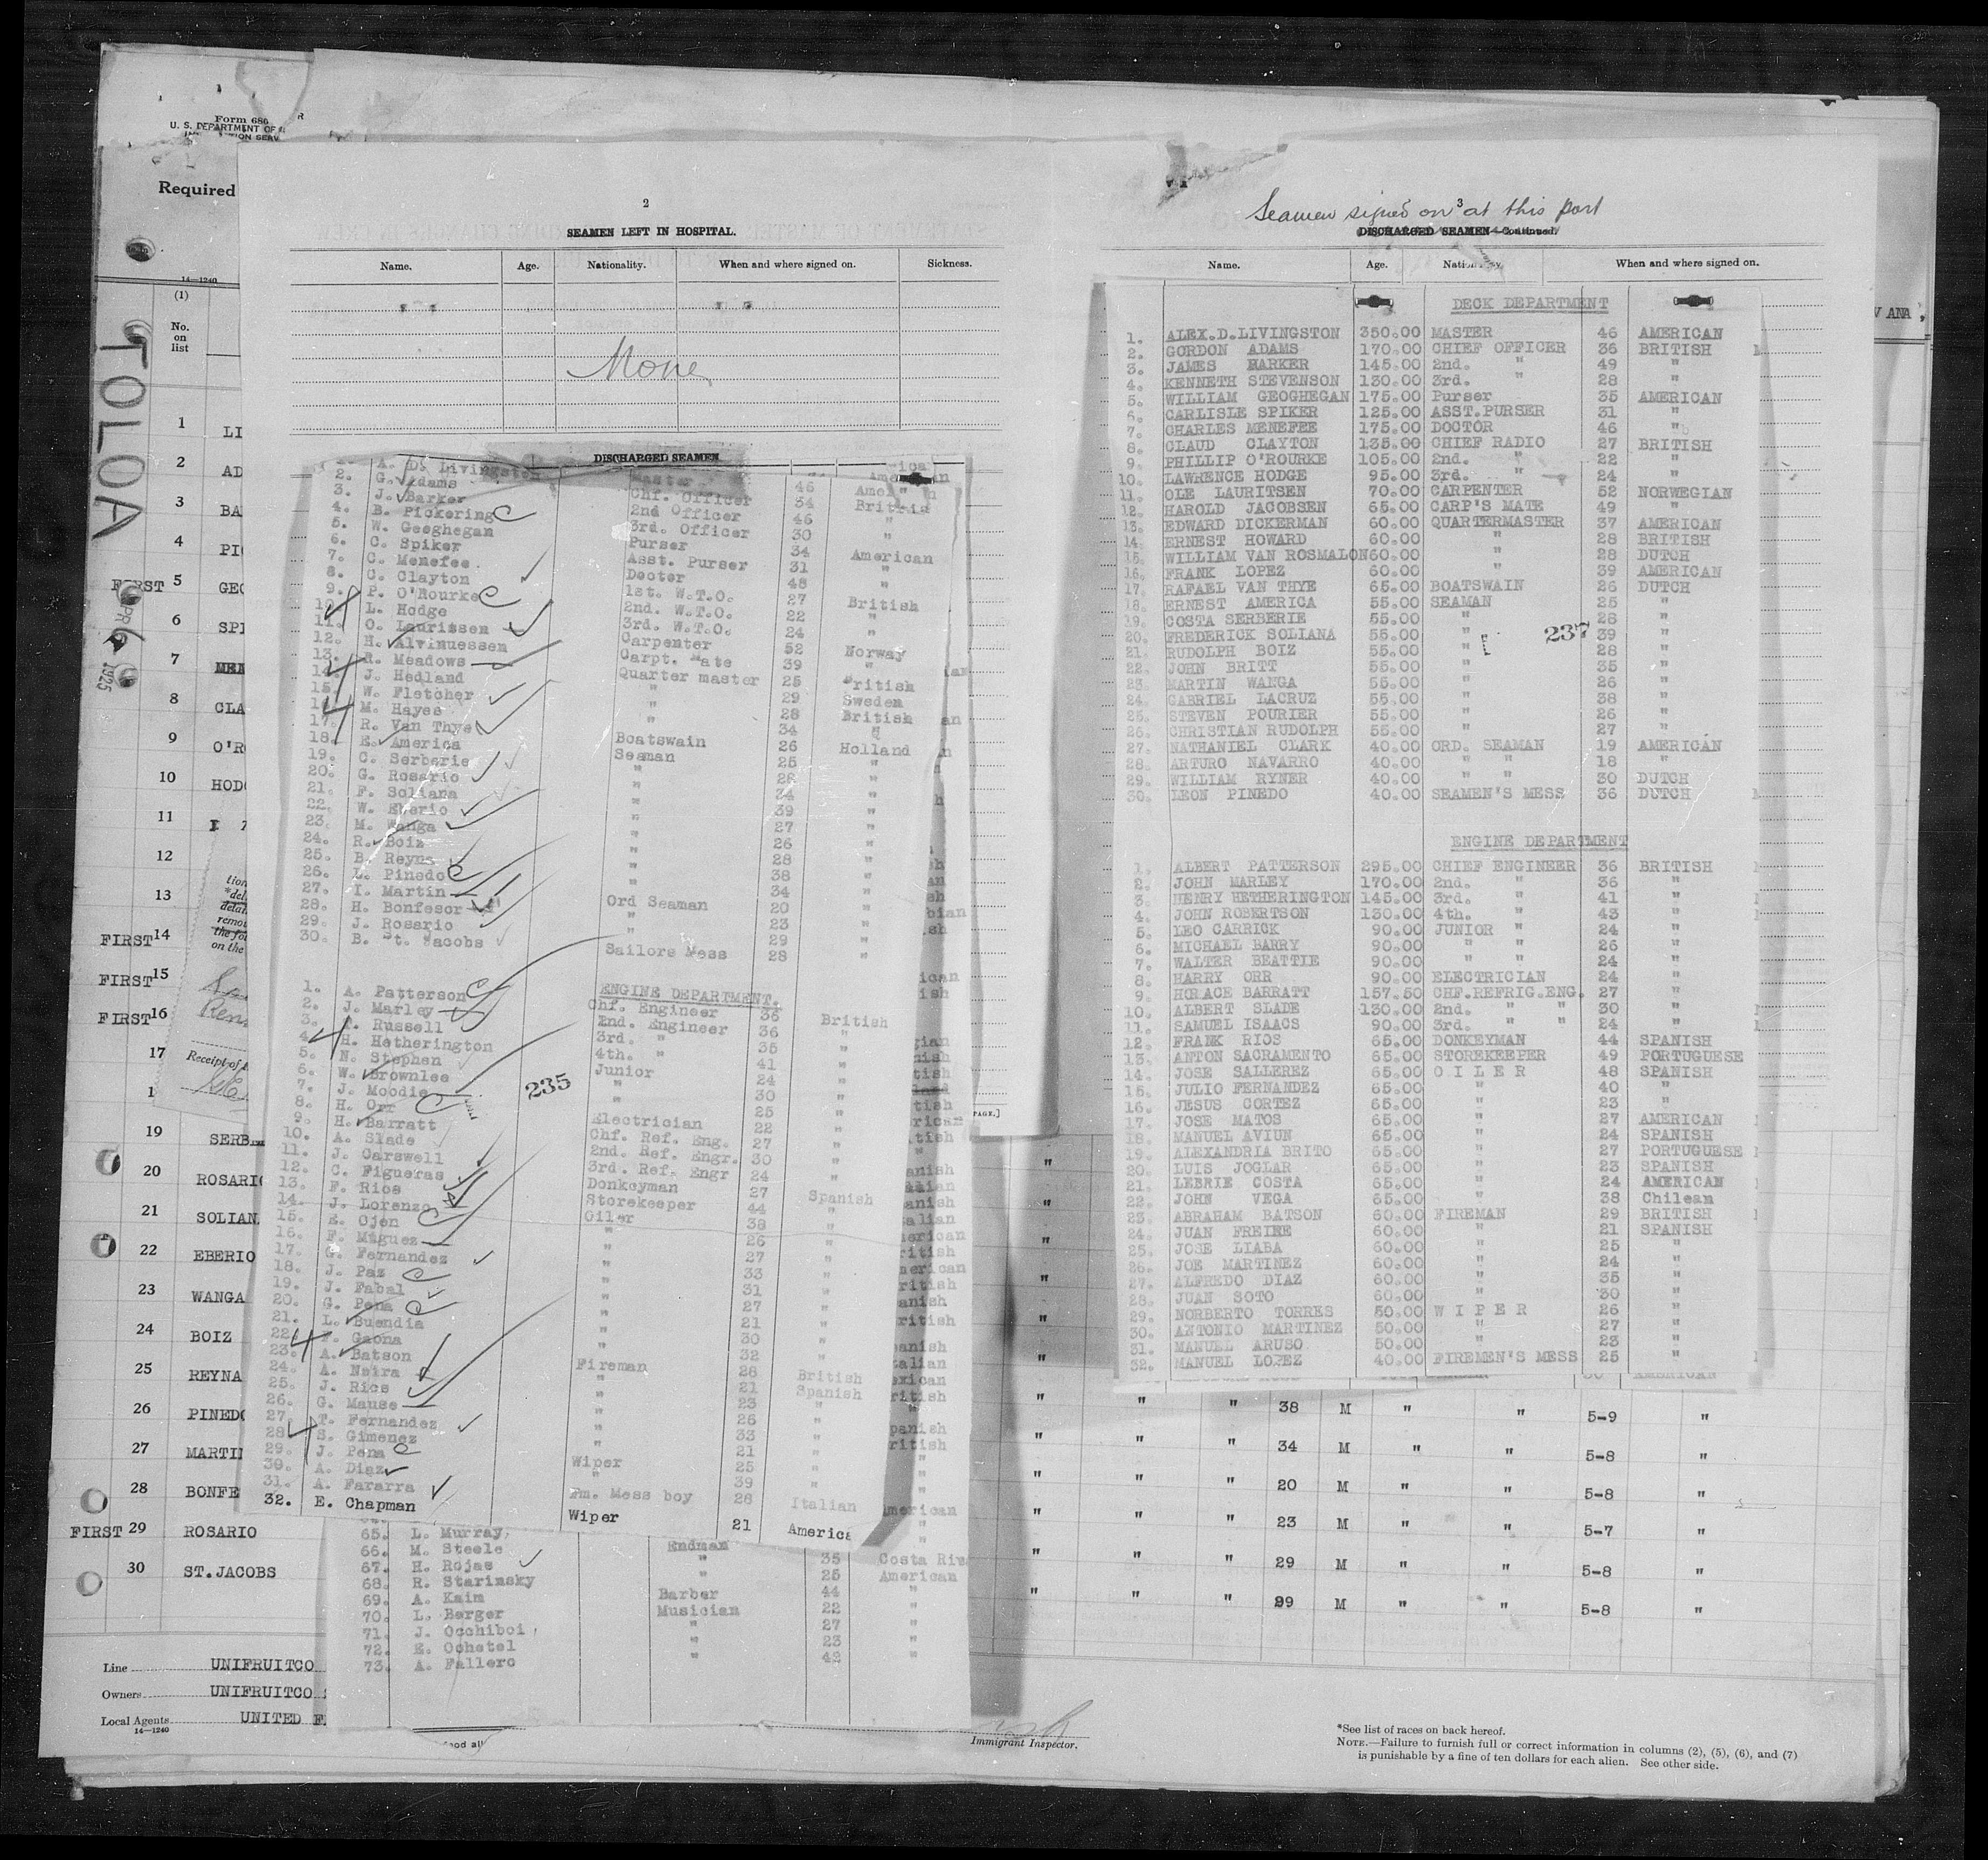 Form 686
U. S. DEPARTMENT OF
Required
14—1240
(1)
No.
on
list
TOLOA
1 LI
2 AD
3 BA
4 PI
FIRST 5 GEO
6 SPI
7
8 CLA
9 O'R
10 HOD
11
12
13
FIRST 14
FIRST 15
FIRST 16
17
19 SERB
20 ROSARIO
21 SOLIAN
22 EBERIO
23 WANGA
24 BOIZ
25 REYNA
26 PINEDO
27 MARTI
28 BONFE
FIRST 29 ROSARIO
30 ST.JACOBS
Line UNIFRUITCO
Owners UNIFRUITCO
Local Agents UNITED F
14—1240
Receipt of
2
SEAMEN LEFT IN HOSPITAL.
Name. Age. Nationality. When and where signed on. Sickness.
None
DISCHARGED SEAMEN
1. A. D. Livingston Master 46 American
2. G. Adams Chf. Officer 34 British
3. J. Barker 2nd Officer 46 "
4. B. Pickering 3rd. Officer 30 "
5. W. Geoghegan Purser 34 American
6. C. Spiker Asst. Purser 31 "
7. C. Menefee. Docter 48 "
8. C. Clayton 1st. W.T.O. 27 British
9. P. O'Rourke 2nd. W.T.O. 22 "
10. L. Hodge 3rd. W.T.O. 24 "
11. O. Lauritsen Carpenter 52 Norway
12. H. Alvinuessen Carpt. Mate 39 "
13. R. Meadows Quarter master 25 British
14. J. Hedland " 29 Sweden
15. W. Fletcher " 28 British
16. M. Hayes " 34 "
17. R. Van Thye Boatswain 26 Holland
18. E. America Seaman 25 "
19. C. Serberie " 28 "
20. G. Rosario " 34 "
21. F. Soliana " 39 "
22. W. Eberio " 27 "
23. M. Wanga " 26 "
24. R. Boiz " 28 "
25. B. Reyna " 38 "
26. L. Pinedo " 34 "
27. I. Martin Ord Seaman 20 "
28. H. Bonfesor " 23 "
29. J. Rosario " 29 "
30. B. St. Jacobs Sailors Mess 28 "
ENGINE DEPARTMENT.
1. A. Patterson Chf. Engineer 36 British
2. J. Marley 2nd. Engineer 36 "
3. Russell 3rd. " 35 "
4. H. Hetherington 4th. " 41 "
5. N. Stephen Junior 24 "
6. W. Brownlee " 30 "
7. J. Moodie " 25 "
8. H. Orr Electrician 22 "
9. H. Barratt Chf. Ref. Eng. 27 "
10. A. Slade 2nd. Ref. Engr. 30 "
11. J. Carswell 3rd. Ref. Engr 24 "
12. C. Figueras Donkeyman 27 Spanish
13. F. Rios Storekeeper 44 "
14. J. Lorenzo Oiler 38 "
15. E. Ojen " 26 "
16. F. Miguez " 27 "
17. G. Fernandez " 33 "
18. J. Paz " 31 "
19. J. Fabal " 27 "
20. G. Pena " 21 "
21. L. Buendia " 30 "
22. F. Gaona " 32 "
23. A. Batson Fireman 28 British
24. A. Neira " 21 Spanish
25. J. Rios " 23 "
26. G. Mause " 26 "
27. T. Fernandez " 33 "
28. S. Gimenez " 21 "
29. J. Pena Wiper 25 "
30. A. Diaz " 39 "
31. A. Fararra Pm. Mess boy 28 Italian
32. E. Chapman Wiper 21 America
235
65. L. Murray,
66. M. Steele Endman 35 Costa Ri
67. H. Rojas " 25 American
68. R. Starinsky 44 "
69. A. Kaim Barber 22 "
70. L. Berger Musician 27 "
71. J. Occhiboi " 23 "
72. E. Ochatel " 42 "
73. A. Fallero "
Immigrant Inspector.
3
Seamen signed on at this port
DISCHARGED SEAMEN—Continued.
Name. Age. Nationality When and where signed on.
DECK DEPARTMENT
1. ALEX.D.LIVINGSTON 350.00 MASTER 46 AMERICAN
2. GORDON ADAMS 170.00 CHIEF OFFICER 36 BRITISH
3. JAMES BARKER 145.00 2nd. " 49 "
4. KENNETH STEVENSON 130.00 3rd. " 28 "
5. WILLIAM GEOGHEGAN 175.00 Purser 35 AMERICAN
6. CARLISLE SPIKER 125.00 ASST.PURSER 31 "
7. CHARLES MENEFEE 175.00 DOCTOR 46 "
8. CLAUD CLAYTON 135.00 CHIEF RADIO 27 BRITISH
9. PHILLIP O'ROURKE 105.00 2nd. " 22 "
10. LAWRENCE HODGE 95.00 3rd. " 24 "
11. OLE LAURITSEN 70.00 CARPENTER 52 NORWEGIAN
12. HAROLD JACOBSEN 65.00 CARP'S MATE 49 "
13. EDWARD DICKERMAN 60.00 QUARTERMASTER 37 AMERICAN
14. ERNEST HOWARD 60.00 " 28 BRITISH
15. WILLIAM VAN ROSMALON 60.00 " 28 DUTCH
16. FRANK LOPEZ 60.00 " 39 AMERICAN
17. RAFAEL VAN THYE 65.00 BOATSWAIN 26 DUTCH
18. ERNEST AMERICA 55.00 SEAMAN 25 "
19. COSTA SERBERIE 55.00 " 28 "
20. FREDERICK SOLIANA 55.00 " 39 "
21. RUDOLPH BOIZ 55.00 " 28 "
22. JOHN BRITT 55.00 " 35 "
23. MARTIN WANGA 55.00 " 26 "
24. GABRIEL LACRUZ 55.00 " 38 "
25. STEVEN POURIER 55.00 " 26 "
26. CHRISTIAN RUDOLPH 55.00 " 27 "
27. NATHANIEL CLARK 40.00 ORD. SEAMAN 19 AMERICAN
28. ARTURO NAVARRO 40.00 " " 18 "
29. WILLIAM RYNER 40.00 " " 30 DUTCH
30. LEON PINEDO 40.00 SEAMEN'S MESS 36 DUTCH
237
ENGINE DEPARTMENT
1. ALBERT PATTERSON 295.00 CHIEF ENGINEER 36 BRITISH
2. JOHN MARLEY 170.00 2nd. " 36 "
3. HENRY HETHERINGTON 145.00 3rd. " 41 "
4. JOHN ROBERTSON 130.00 4th. " 43 "
5. LEO CARRICK 90.00 JUNIOR " 24 "
6. MICHAEL BARRY 90.00 " " 26 "
7. WALTER BEATTIE 90.00 " " 24 "
8. HARRY ORR 90.00 ELECTRICIAN 24 "
9. HORACE BARRATT 157.50 CHF.REFRIG.ENG. 27 "
10. ALBERT SLADE 130.00 2nd. " " 30 "
11. SAMUEL ISAACS 90.00 3rd. " " 24 "
12. FRANK RIOS 65.00 DONKEYMAN 44 SPANISH
13. ANTON SACRAMENTO 65.00 STOREKEEPER 49 PORTUGUESE
14. JOSE SALLEREZ 65.00 O I L E R 48 SPANISH
15. JULIO FERNANDEZ 65.00 " 40 "
16. JESUS CORTEZ 65.00 " 23 "
17. JOSE MATOS 65.00 " 27 AMERICAN
18. MANUEL AVIUN 65.00 " 24 SPANISH
19. ALEXANDRIA BRITO 65.00 " 27 PORTUGUESE
20. LUIS JOGLAR 65.00 " 23 SPANISH
21. LEBRIE COSTA 65.00 " 24 AMERICAN
22. JOHN VEGA 65.00 " 38 Chilean
23. ABRAHAM BATSON 60.00 FIREMAN 29 BRITISH
24. JUAN FREIRE 60.00 " 21 SPANISH
25. JOSE LIABA 60.00 " 25 "
26. JOE MARTINEZ 60.00 " 24 "
27. ALFREDO DIAZ 60.00 " 35 "
28. JUAN SOTO 60.00 " 30 "
29. NORBERTO TORRES 50.00 W I P E R 26 "
30. ANTONIO MARTINEZ 50.00 " 27 "
31. MANUEL ARUSO 50.00 " 23 "
32. MANUEL LOPEZ 40.00 FIREMEN'S MESS 25 "
" " " 38 M " " 5-9 "
" " " 34 M " " 5-8 "
" " " 20 M " " 5-8 "
" " " 23 M " " 5-7 "
" " " 29 M " " 5-8 "
" " " 29 M " " 5-8 "
*See list of races on back hereof.
NOTE.—Failure to furnish full or correct information in columns (2), (5), (6), and (7)
is punishable by a fine of ten dollars for each alien. See other side.